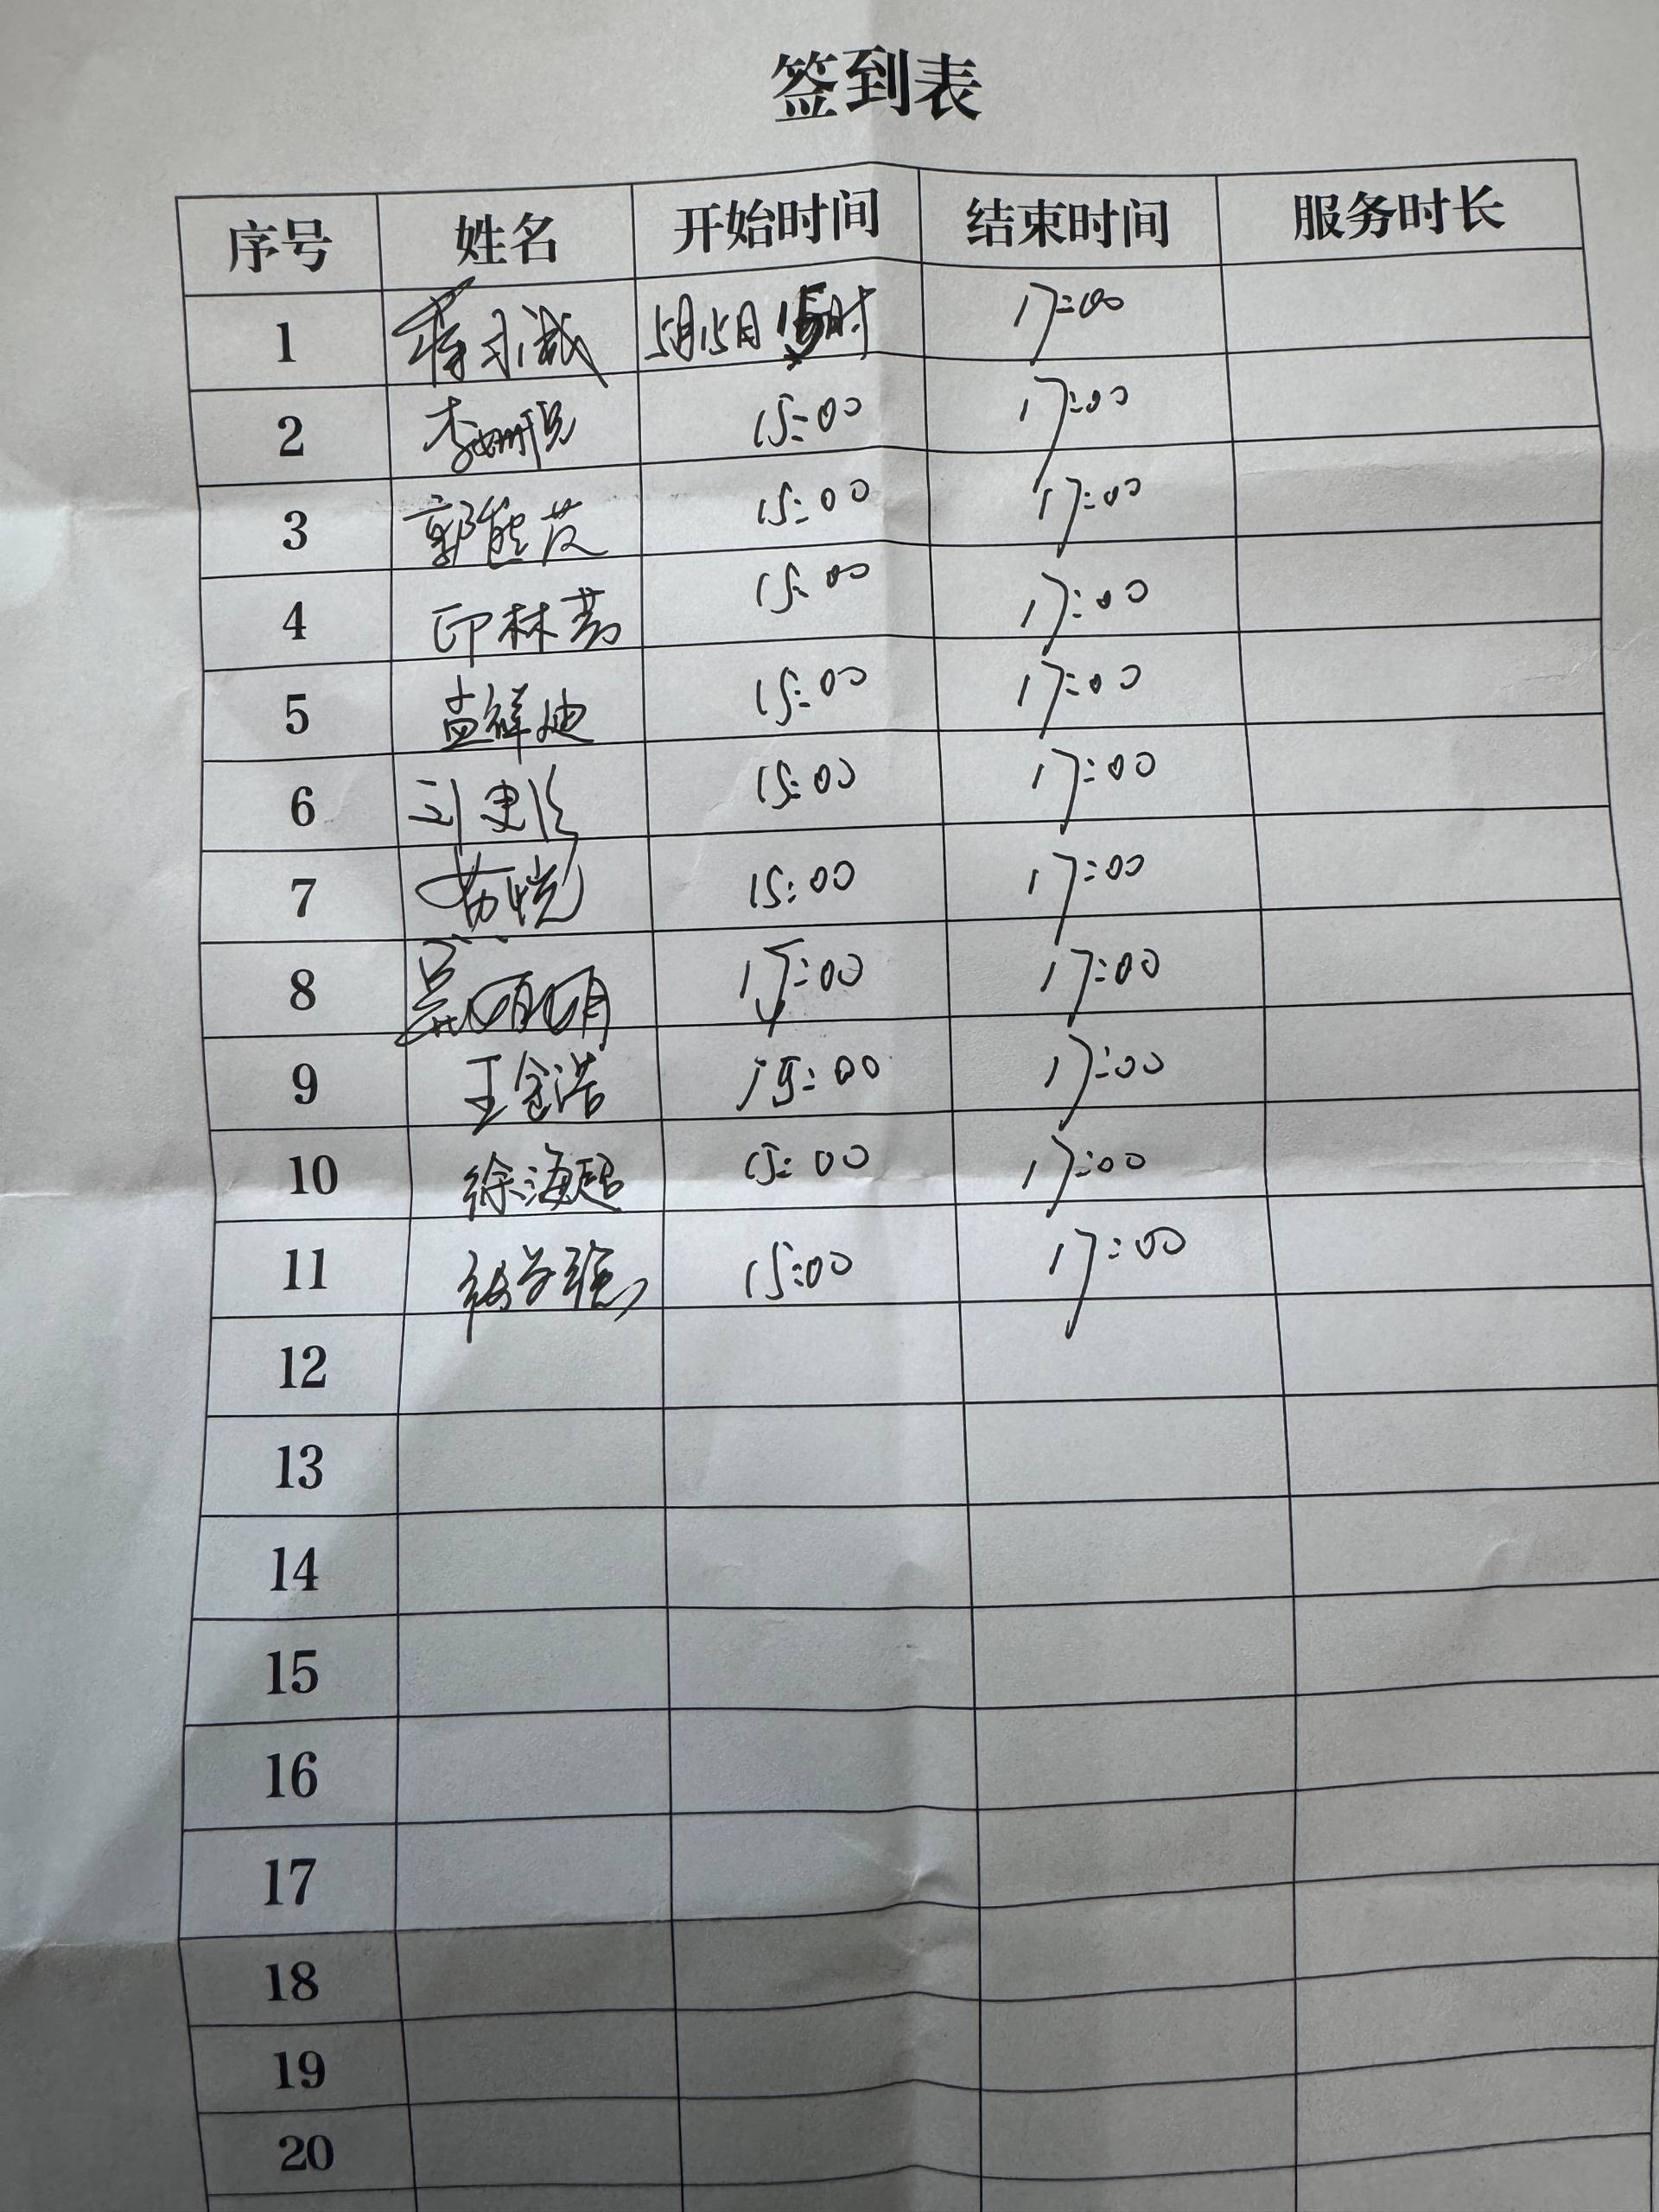 签到表
序号 姓名 开始时间 结束时间 服务时长
1 蒋永诚 5月15日 15时 17:00
2 李姗悦 15:00 17:00
3 郭能芨 15:00 17:00
4 印林芳 15:00 17:00
5 孟鲜迪 15:00 17:00
6 刘 15:00 17:00
7 苗恺 15:00 17:00
8 吴明明 15:00 17:00
9 王金浩 15:00 17:00
10 徐海超 15:00 17:00
11 15:00 17:00
12
13
14
15
16
17
18
19
20